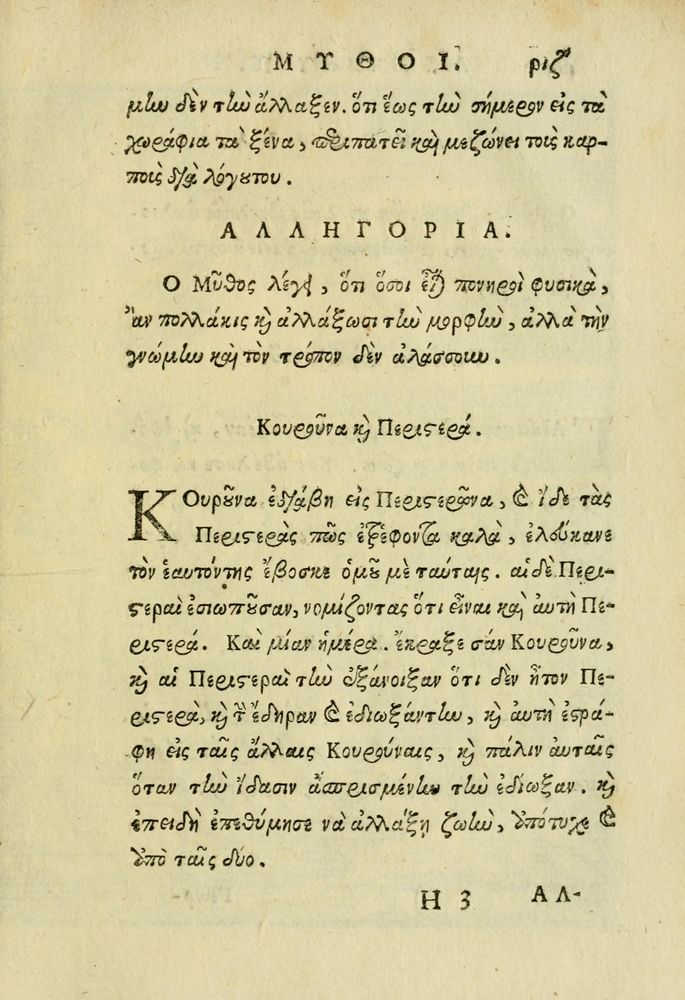 ΜΥΘΟΙ. ριζʹ
μὴν δὲν τὴν ἄλλαξεν. ὅτι ἕως τὴν σήμερον εἰς τὰ
χωράφια τὰ ξένα, περιπατεῖ καὶ μεζώνει τοὺς καρ-
ποὺς διὰ λόγουτου.
ΑΛΛΗΓΟΡΙΑ.
Ο Μῦθος λέγει, ὅτι ὅσοι εἶναι πονηροὶ φυσικὰ,
ἂν πολλάκις καὶ ἀλλάξωσι τὴν μορφὴν, ἀλλὰ τὴν
γνώμην καὶ τὸν τρόπον δὲν ἀλάσσουν.
Κουροῦνα καὶ Περιστερά.
ΚΟυροῦνα ἐδιάβη εἰς Περιστερῶνα, καὶ ἴδε τὰς
Περιστερὰς πῶς ἐτρέφοντα καλὰ, ἐλούκανε
τὸν ἑαυτόντης ἔβοσκε ὁμοῦ μὲ ταύταις. αἱ δὲ Περι-
στεραὶ ἐσιωποῦσαν, νομίζοντας ὅτι εἶναι καὶ αὐτὴ Πε-
ριστερά. Καὶ μίαν ἡμέρα. ἔκραξε σὰν Κουροῦνα,
καὶ αἱ Περιστεραὶ τὴν ἐξάνοιξαν ὅτι δὲν ἦτον Πε-
ριστερὰ, καὶ τὴν ἔδηραν καὶ ἐδιωξάντην, καὶ αὐτὴ ἐστρά-
φη εἰς ταῖς ἄλλαις Κουρούναις, καὶ πάλιν αὐταῖς
ὅταν τὴν ἴδασιν ἀσπρισμένην τὴν ἐδίωξαν. καὶ
ἐπειδὴ ἐπεθύμησε νὰ ἀλλάξῃ ζωὴν, ἀπότυχε καὶ
ἀπὸ ταῖς δύο.
Η 3 ΑΛ-